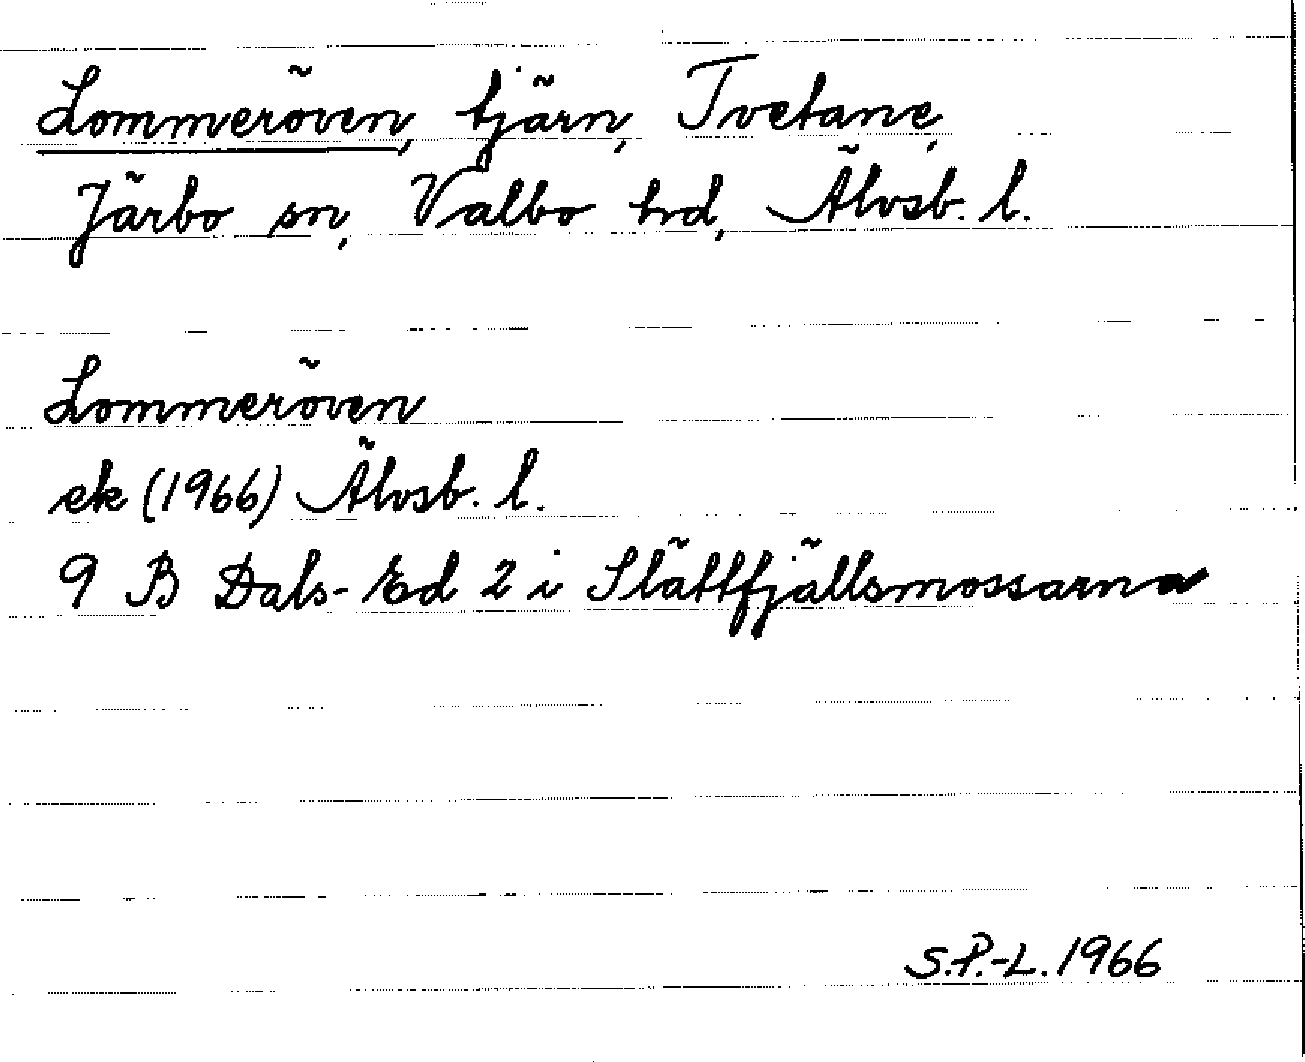 Lommeröven, tjärn, Tvetane,
Järbo sn, Valbo hd, Älvsb. l.
Lommeröven
ek (1966) Älvsb. l.
9 B Dals-Ed 2 i Slättfjällsmossarna
S.P.-L. 1966